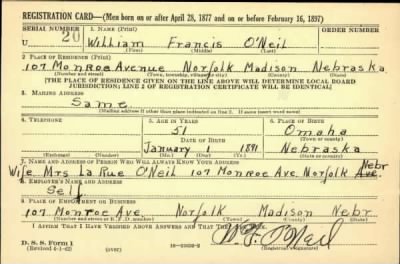 REGISTRATION CARD—(Men born on or after April 28, 1877 and on or before February 16, 1897)
SERIAL NUMBER 1. NAME (Print) ORDER NUMBER
U 20 William Francis O'Neil
(First) (Middle) (Last)
2. PLACE OF RESIDENCE (Print)
107 Monroe Avenue Norfolk Madison Nebraska
(Number and street) (Town, township, village, or city) (County) (State)
[THE PLACE OF RESIDENCE GIVEN ON THE LINE ABOVE WILL DETERMINE LOCAL BOARD
JURISDICTION; LINE 2 OF REGISTRATION CERTIFICATE WILL BE IDENTICAL]
3. MAILING ADDRESS
Same
[Mailing address if other than place indicated on line 2. If same insert word same]
4. TELEPHONE 5. AGE IN YEARS 6. PLACE OF BIRTH
51 Omaha
DATE OF BIRTH (Town or county)
January 1 1891 Nebraska
(Mo.) (Day) (Yr.) (State or country)
7. NAME AND ADDRESS OF PERSON WHO WILL ALWAYS KNOW YOUR ADDRESS Nebr
Wife Mrs La Rue O'Neil 107 Monroe Ave. Norfolk Ave.
8. EMPLOYER'S NAME AND ADDRESS
Self
9. PLACE OF EMPLOYMENT OR BUSINESS
107 Monroe Ave. Norfolk Madison Nebr.
(Number and street or R. F. D. number) (Town) (County) (State)
I AFFIRM THAT I HAVE VERIFIED ABOVE ANSWERS AND THAT THEY ARE TRUE.
D. S. S. Form 1
(Revised 4-1-42) (over) W. F. O'Neil
(Registrant's signature)